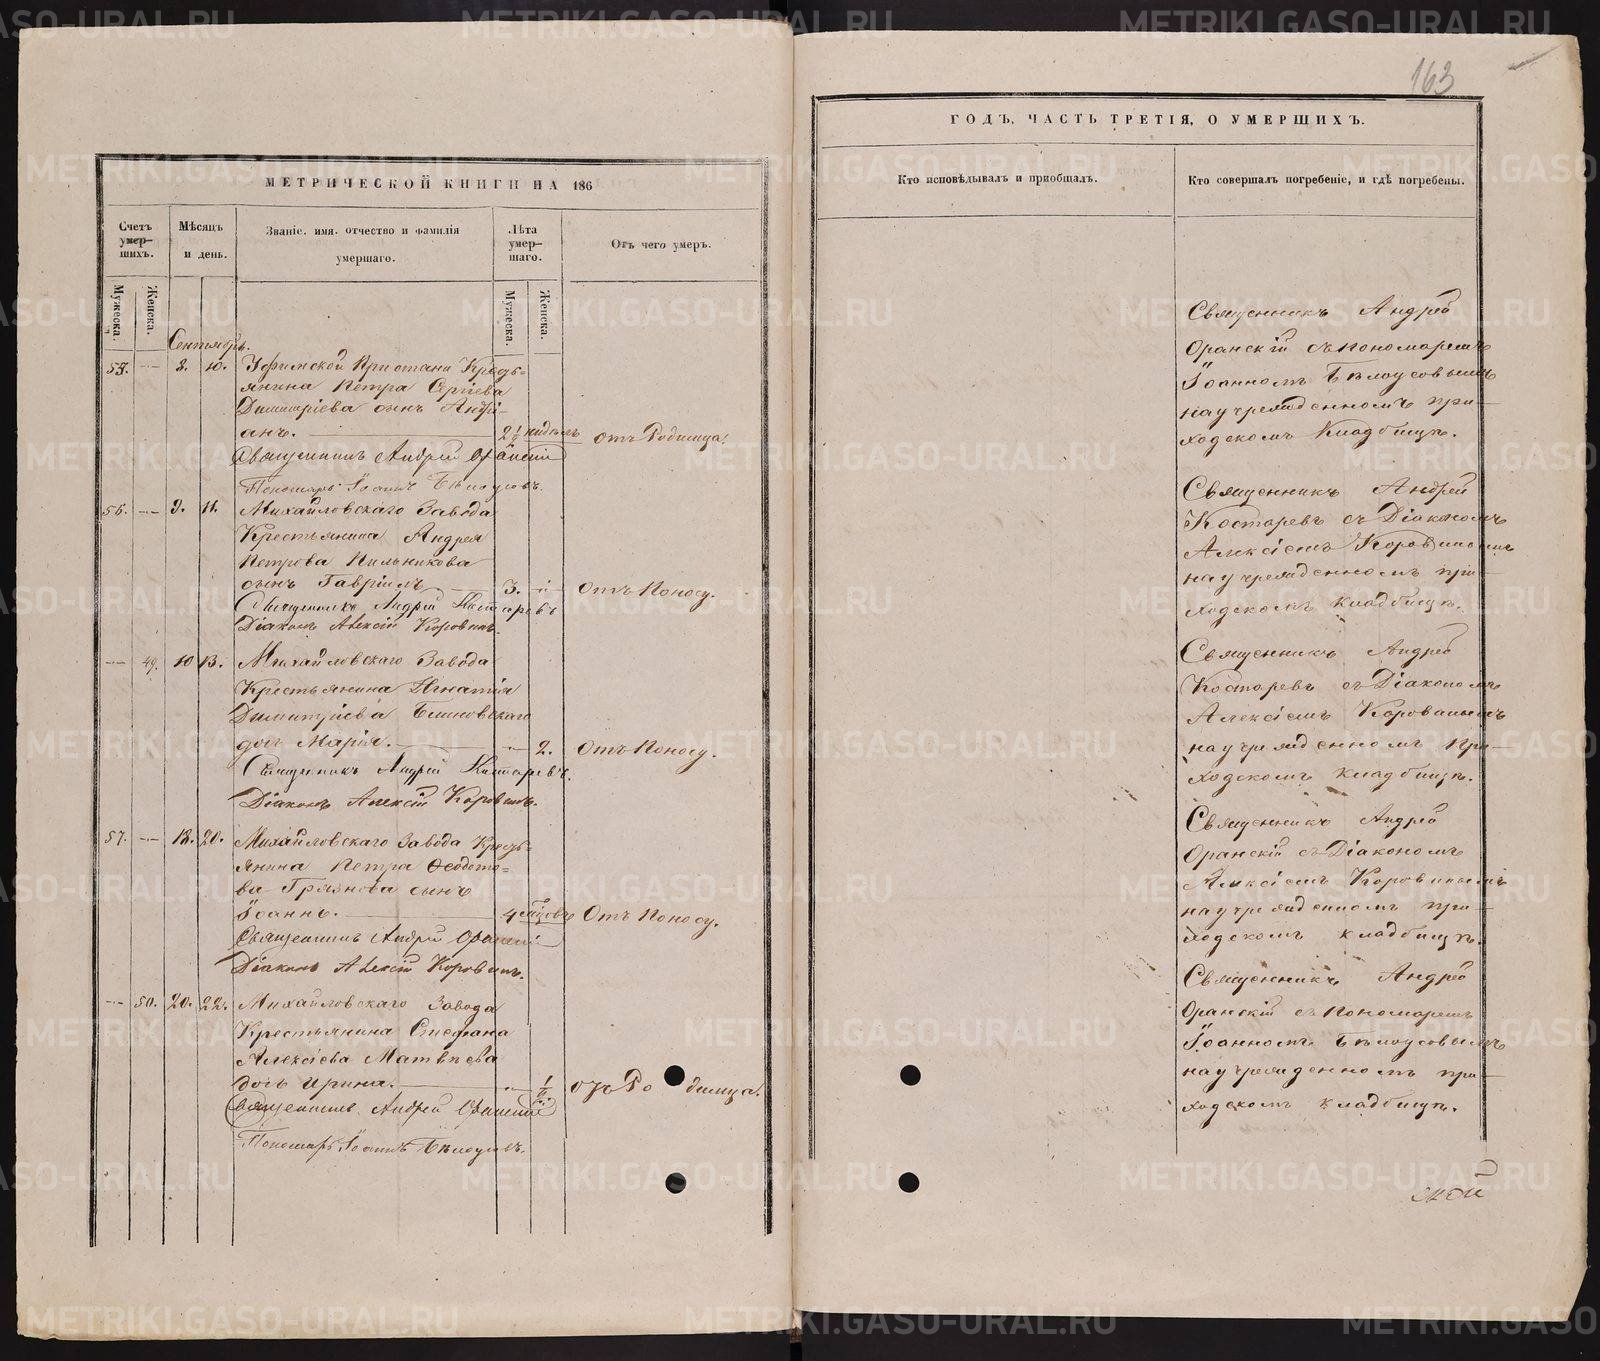 163
МЕТРИЧЕСКОЙ КНИГИ НА 186
Счетъ умер-шихъ.
Мѣсяцъ и день.
Званіе, имя, отчество и фамилія умершаго.
Лѣта умер-шаго.
Отъ чего умеръ.
Мужеска.
Женска.
Мужеска.
Женска.
Сентябрь.
55. — 8. 10. Уфимской Пристани Кресть=
янина Петра Сергіева
Димитріева сынъ Андрі-
анъ. 2 1/2 недѣль отъ Родимца.
Священникъ Андрей Оранскій
Пономарь Іоаннъ Бѣлоусовъ.
56. — 9. 11. Михайловскаго Завода
Крестьянина Андрея
Петрова Пильникова
сынъ Гавріилъ 3. Отъ Поносу.
Священникъ Андрей Костаревъ
Діаконъ Алексій Коровинъ.
— 49. 10 13. Михайловскаго Завода
Крестьянина Игнатія
Димитріева Блиновскаго
дочь Марія. 2. Отъ Поносу.
Священникъ Андрей Костаревъ.
Діаконъ Алексій Коровинъ.
57. — 18. 20. Михайловскаго Завода Кресть=
янина Петра Ѳеодото=
ва Грязнова сынъ
Іоаннъ. 4 Отъ Поносу.
Священникъ Андрей Оранскій
Діаконъ Алексій Коровинъ.
— 50. 20. 22. Михайловскаго Завода
Крестьянина Стефана
Алексіева Матвѣева
дочь Ирина. 1/2 отъ Родимца.
Священникъ Андрей Оранскій
Пономарь Іоаннъ Бѣлоусовъ.
ГОДЪ, ЧАСТЬ ТРЕТІЯ, О УМЕРШИХЪ.
Кто исповѣдывалъ и пріобщалъ.
Кто совершалъ погребеніе, и гдѣ погребены.
Священникъ Андрей
Оранскій съ Пономаремъ
Іоанномъ Бѣлоусовымъ
на учрежденномъ при-
ходскомъ кладбищѣ.
Священникъ Андрей
Костаревъ съ Діакономъ
Алексіемъ Коровинымъ
на учрежденномъ при-
ходскомъ кладбищѣ.
Священникъ Андрей
Костаревъ съ Діакономъ
Алексіемъ Коровинымъ
на учрежденномъ при-
ходскомъ кладбищѣ.
Священникъ Андрей
Оранскій съ Діакономъ
Алексіемъ Коровинымъ
на учрежденномъ при-
ходскомъ кладбищѣ.
Священникъ Андрей
Оранскій съ Пономаремъ
Іоанномъ Бѣлоусовымъ
на учрежденномъ при-
ходскомъ кладбищѣ.
METRIKI.GASO-URAL.RU